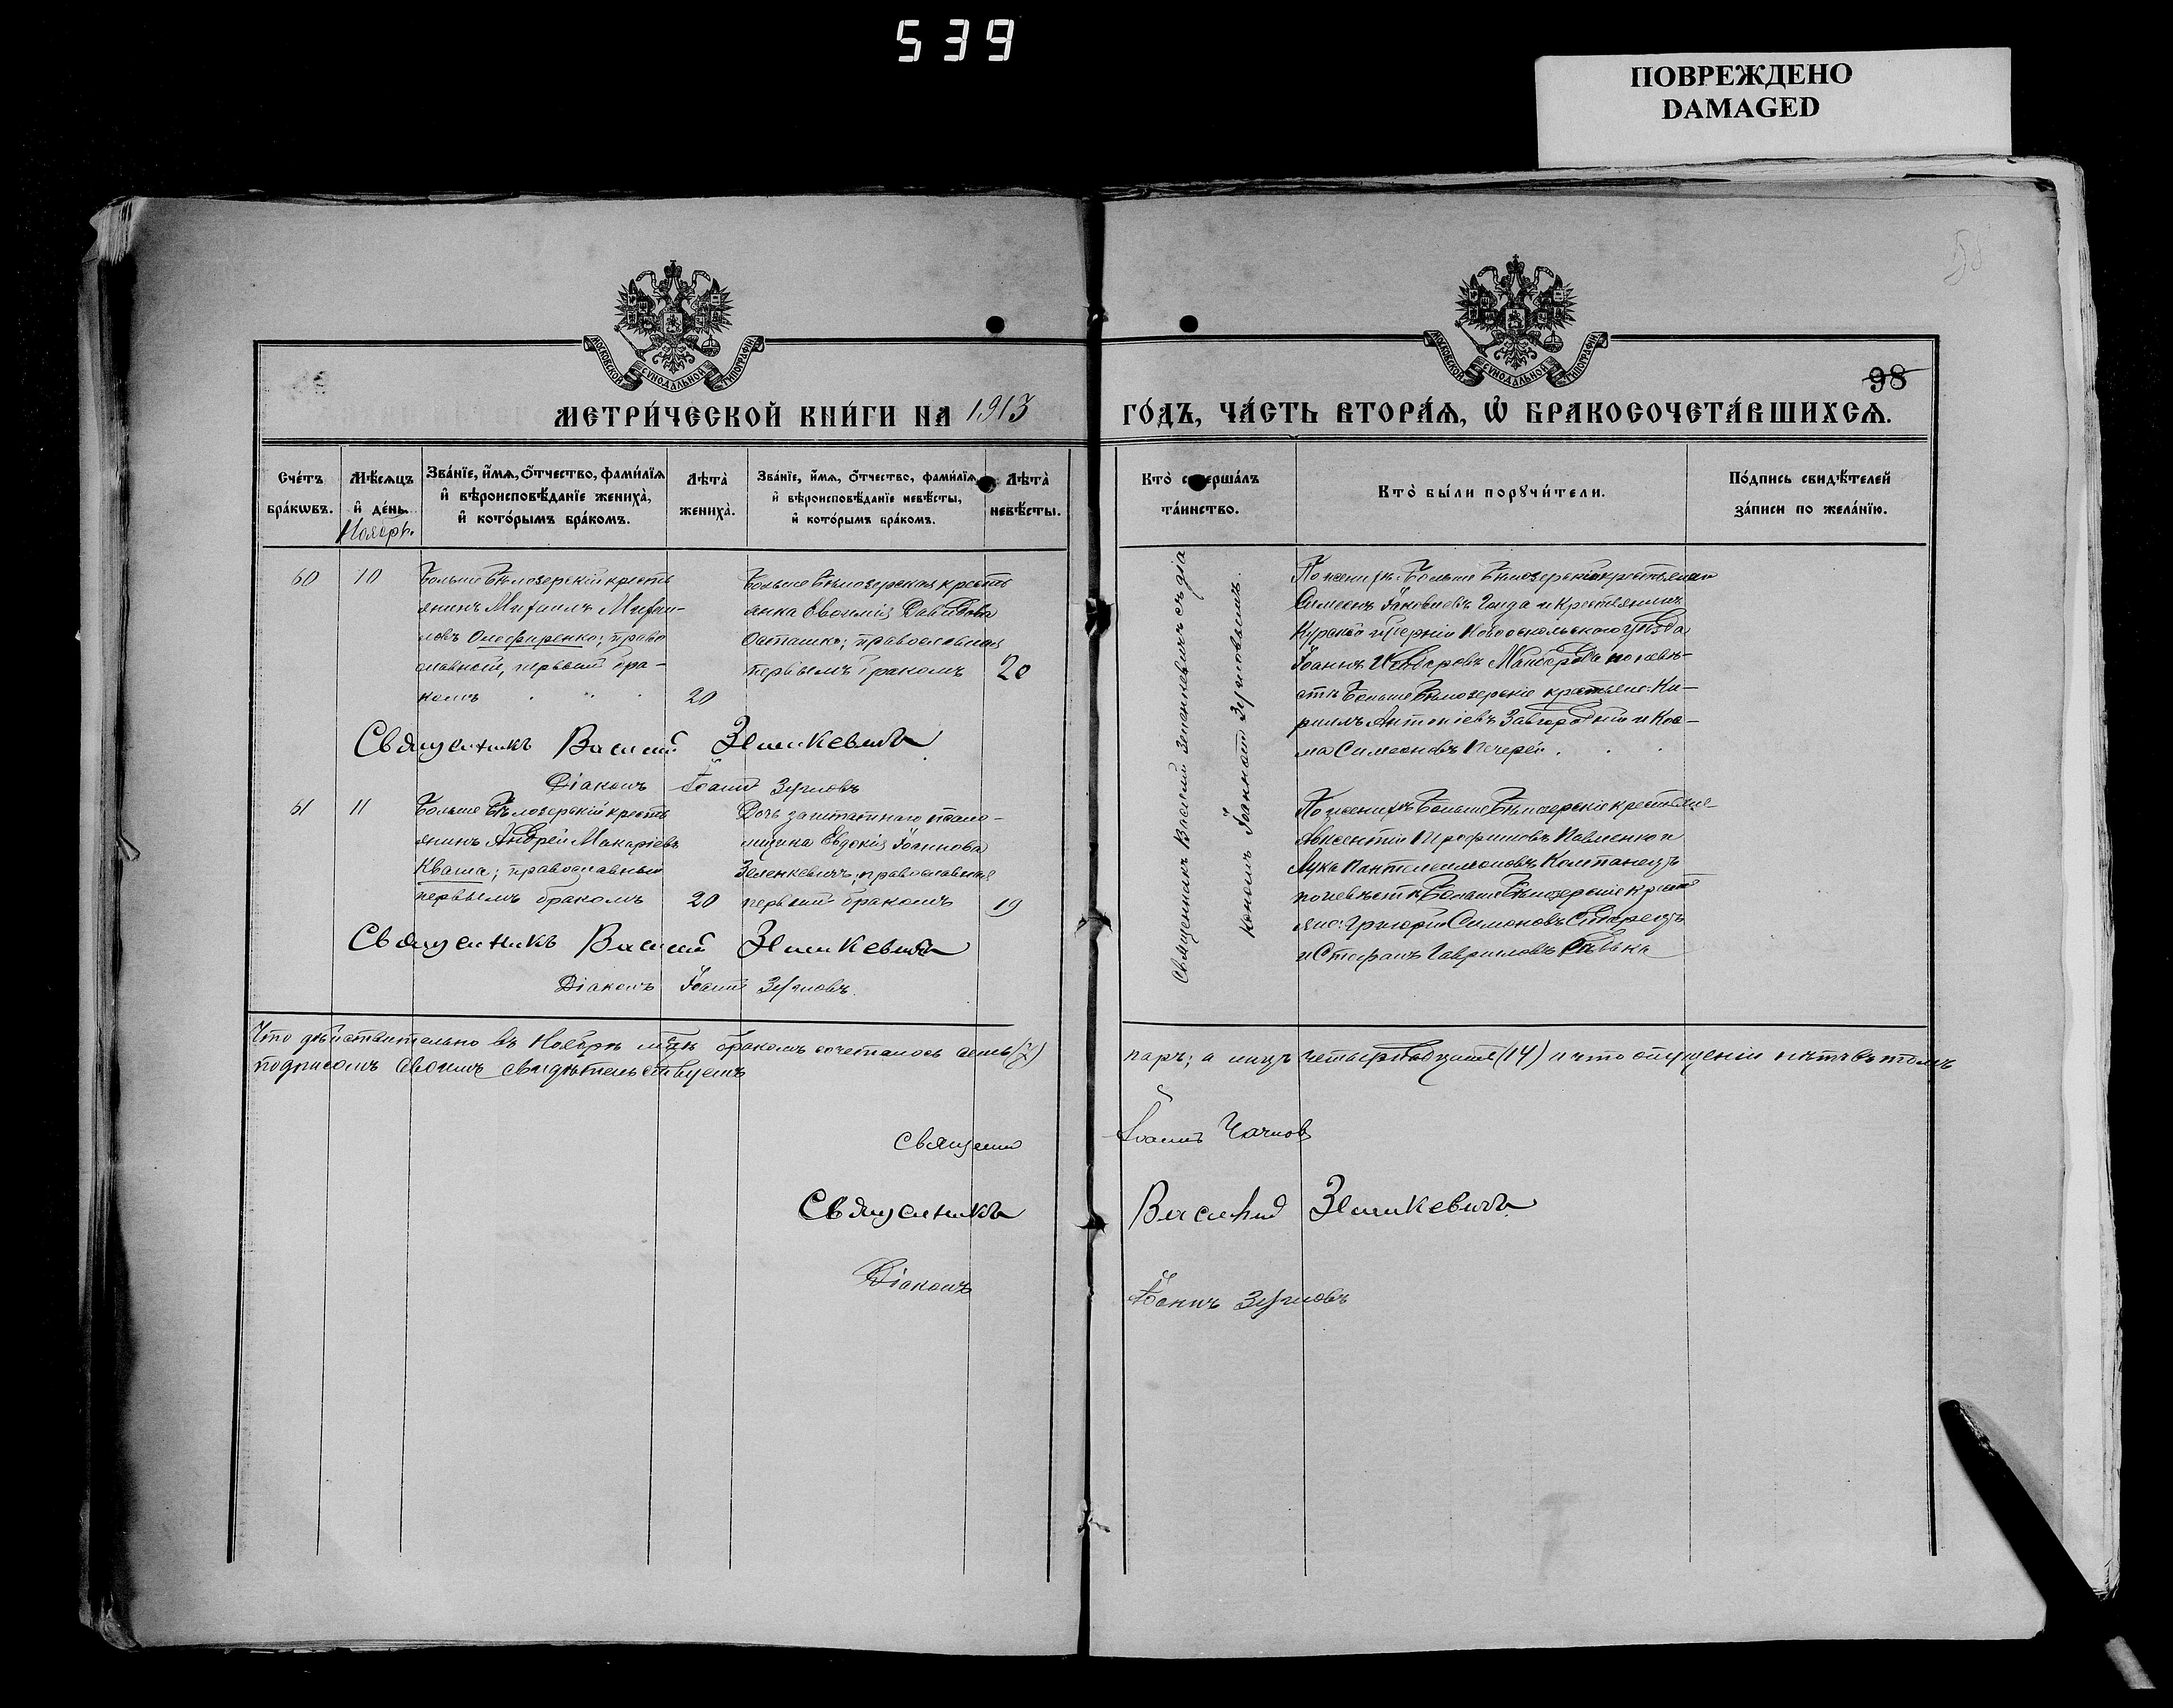 539
ПОВРЕЖДЕНО
DAMAGED
98
МОСКОВСКОЙ СУНОДАЛЬНОЙ ТИПОГРАФІИ
МОСКОВСКОЙ СУНОДАЛЬНОЙ ТИПОГРАФІИ
МЕТРИ́ЧЕСКОЙ КНИ́ГИ НА 1913
ГО́ДЪ, ЧА́СТЬ ВТОРА́Ѧ, Ѡ҆ БРАКОСОЧЕТА́ВШИХСѦ.
Сче́тъ
бра́кѡвъ.
Мѣ́сѧцъ
и҆ де́нь.
Ноябрь.
Зва́нїе, и҆́мѧ, ѻ҆́тчество, фами́лїѧ
и҆ вѣроисповѣ́данїе жениха̀,
и҆ кото́рымъ бра́комъ.
Лѣта̀
жениха̀.
Зва́нїе, и҆́мѧ, ѻ҆́тчество, фами́лїѧ
и҆ вѣроисповѣ́данїе невѣ́сты,
и҆ кото́рымъ бра́комъ.
Лѣта̀
невѣ́сты.
Кто̀ соверша́лъ
та́инство.
Кто̀ бы́ли порꙋчи́тели.
По́дпись свидѣ́телей
за́писи по жела́нїю.
60
10
Больше Бѣлозерскій кресть
янинъ Михаилъ Михаи-
ловъ Олефиренко; право
славный, первымъ бра-
комъ
20
Больше Бѣлозерская кресть
янка Евфимія Давидова
Осташко; православная
первымъ бракомъ
20
Священникъ Василій Зеленкевичъ съ діа
кономъ Іоанномъ Зугиловымъ.
По женихѣ: Больше Бѣлозерскій крестьянин
Симеонъ Іаковлевъ и крестьянинъ
Курской губерніи Новооскольскаго уѣзда
Іоаннъ по невѣ-
стѣ Больше Бѣлозерскіе крестьяне: Ки-
риллъ Антоніевъ Завгородній и Кос-
ма Симеоновъ Печерей.
Священникъ Василій Зеленкевичъ
Діаконъ Іоаннъ Зугиловъ
61
11
Больше Бѣлозерскій кресть
янинъ Андрей Макаріевъ
Кваша; православный
первымъ бракомъ
20
Дочь заштатнаго псало-
мщика Евдокія Іоаннова
Зеленкевичъ; православная
первымъ бракомъ
19
По женихѣ Больше Бѣлозерскіе крестьяне
Авксентій Трофимовъ Павленко и
Лука Пантелеимоновъ Компанецъ
по невѣстѣ Больше Бѣлозерскіе крест
яне: Григорій Симоновъ
и Стефанъ Гавриловъ
Священникъ Василій Зеленкевичъ
Діаконъ Іоаннъ Зугиловъ.
Что дѣйствительно въ Ноябрѣ м-цѣ бракомъ сочеталось семь (7)
паръ; а лицъ четырнадцать (14) и что опущеніи нѣтъ въ томъ
подписомъ своимъ свидѣтельствуемъ
Священни Іоаннъ
Священникъ Василій Зеленкевичъ
Діаконъ Іоаннъ Зугиловъ